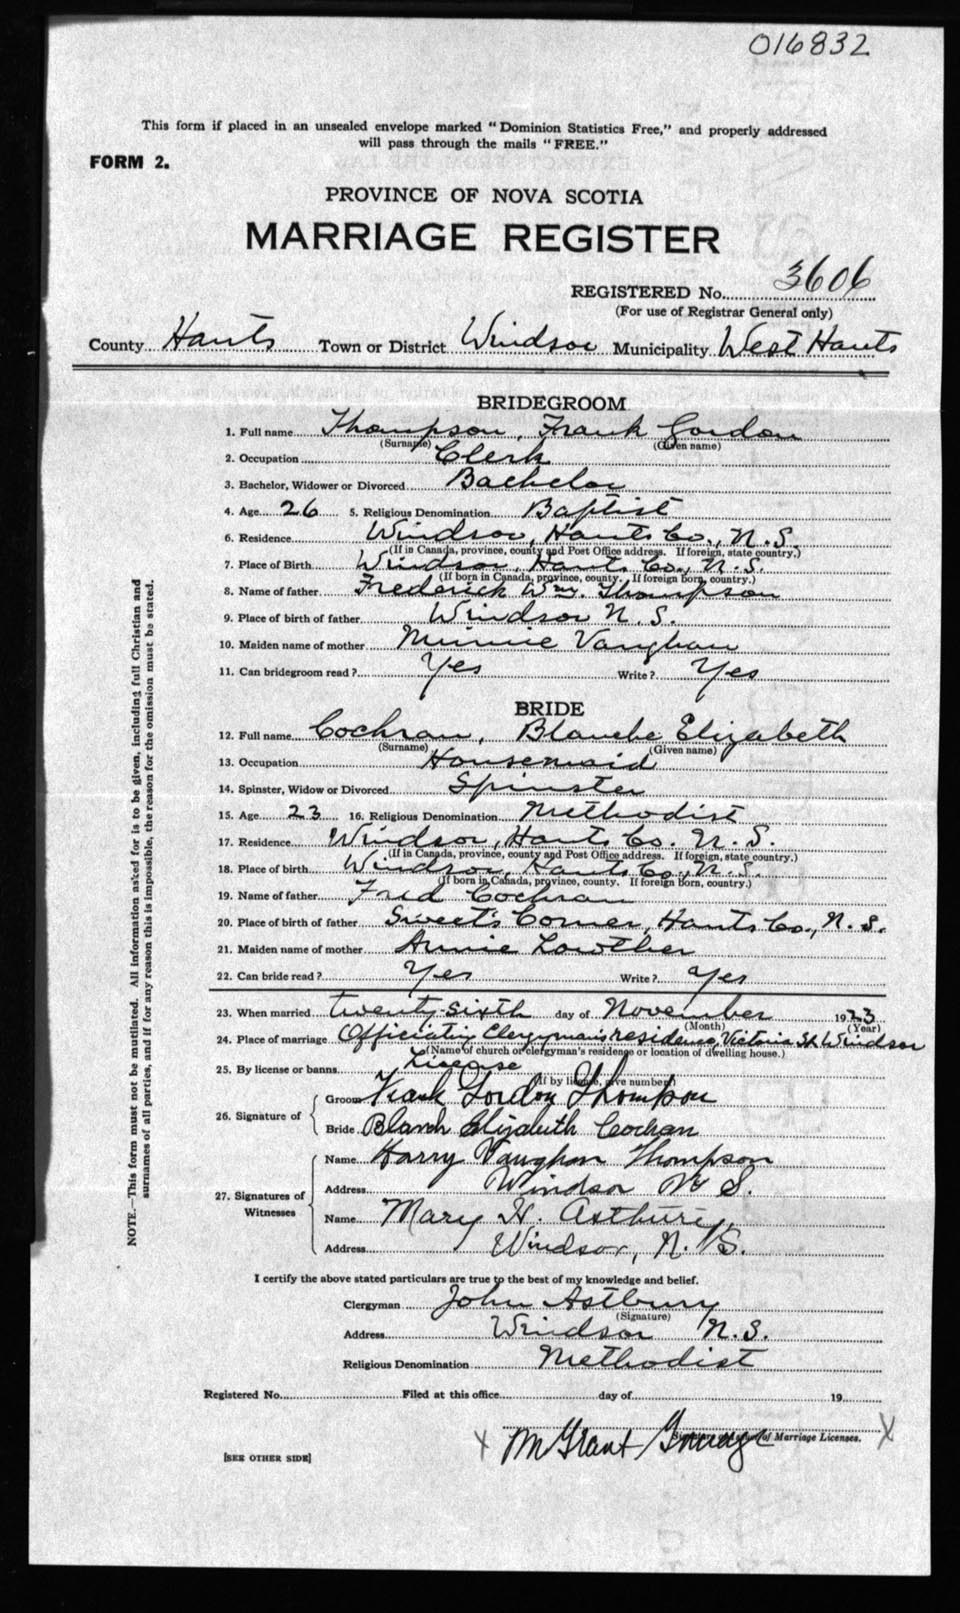 016832
This form if placed in an unsealed envelope marked "Dominion Statistics Free," and properly addressed
will pass through the mails "FREE."
FORM 2.
PROVINCE OF NOVA SCOTIA
MARRIAGE REGISTER
REGISTERED No. 3606
(For use of Registrar General only)
County Hants Town or District Windsor Municipality West Hants
BRIDEGROOM
1. Full name Thompson, Frank Gordon
(Surname) (Given name)
2. Occupation Clerk
3. Bachelor, Widower or Divorced Bachelor
4. Age 26 5. Religious Denomination Baptist
6. Residence Windsor, Hants Co., N.S.
(If in Canada, province, county and Post Office address. If foreign, state country.)
7. Place of Birth Windsor, Hants Co., N.S.
(If born in Canada, province, county. If foreign born, country.)
8. Name of father Frederick Wm. Thompson
9. Place of birth of father Windsor N.S.
10. Maiden name of mother Minnie Vaughan
11. Can bridegroom read? Yes Write? Yes
BRIDE
12. Full name Cochran, Blanche Elizabeth
(Surname) (Given name)
13. Occupation Housemaid
14. Spinster, Widow or Divorced Spinster
15. Age 23 16. Religious Denomination Methodist
17. Residence Windsor, Hants Co. N.S.
(If in Canada, province, county and Post Office address. If foreign, state country.)
18. Place of birth Windsor, Hants Co., N.S.
(If born in Canada, province, county. If foreign born, country.)
19. Name of father Fred Cochran
20. Place of birth of father Sweet's Corner, Hants Co., N.S.
21. Maiden name of mother Annie Lowther
22. Can bride read? Yes Write? Yes
23. When married twenty-sixth day of November 1923
(Month) (Year)
24. Place of marriage Officiating Clergyman's residence, Victoria St. Windsor
(Name of church or clergyman's residence or location of dwelling house.)
25. By license or banns License
(If by license, give number)
26. Signature of Groom Frank Gordon Thompson
Bride Blanch Elizabeth Cochran
27. Signatures of Witnesses Name Harry Vaughan Thompson
Address Windsor N S.
Name Mary H. Astbury
Address Windsor, N.S.
I certify the above stated particulars are true to the best of my knowledge and belief.
Clergyman John Astbury
(Signature)
Address Windsor N.S.
Religious Denomination Methodist
Registered No. Filed at this office day of 19
of Marriage Licenses.
X X
[SEE OTHER SIDE]
NOTE.—This form must not be mutilated. All information asked for is to be given, including full Christian and
surnames of all parties, and if for any reason this is impossible, the reason for the omission must be stated.